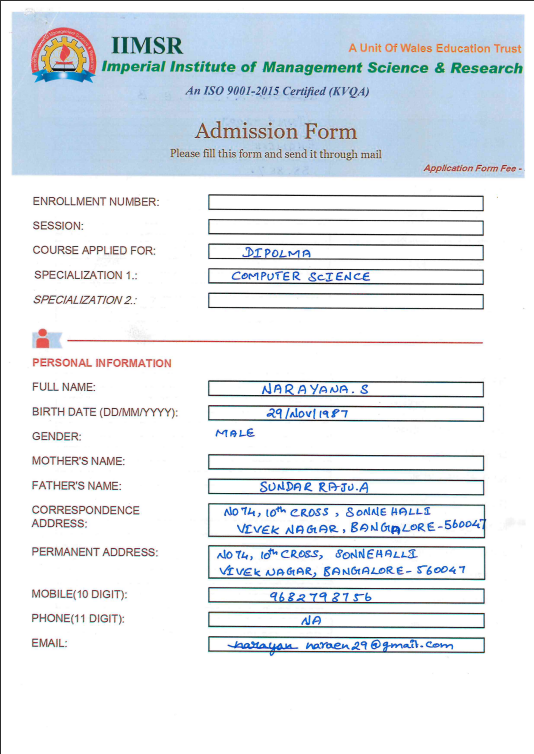 IIMSR
A Unit Of Wales Education Trust
Imperial Institute of Management Science & Research
An ISO 9001-2015 Certified (KVQA)
Admission Form
Please fill this form and send it through mail
Application Form Fee -
ENROLLMENT NUMBER:
SESSION:
COURSE APPLIED FOR: DIPOLMA
SPECIALIZATION 1.: COMPUTER SCIENCE
SPECIALIZATION 2.:
PERSONAL INFORMATION
FULL NAME: NARAYANA.S
BIRTH DATE (DD/MM/YYYY): 29/NOV/1987
GENDER: MALE
MOTHER'S NAME:
FATHER'S NAME: SUNDAR RAJU.A
CORRESPONDENCE ADDRESS: NO 74, 10th CROSS, SONNEHALLI
VIVEK NAGAR, BANGALORE-560047
PERMANENT ADDRESS: NO 74, 10th CROSS, SONNEHALLI
VIVEK NAGAR, BANGALORE-560047
MOBILE(10 DIGIT): 9682798756
PHONE(11 DIGIT): NA
EMAIL: naraen29@gmail.com